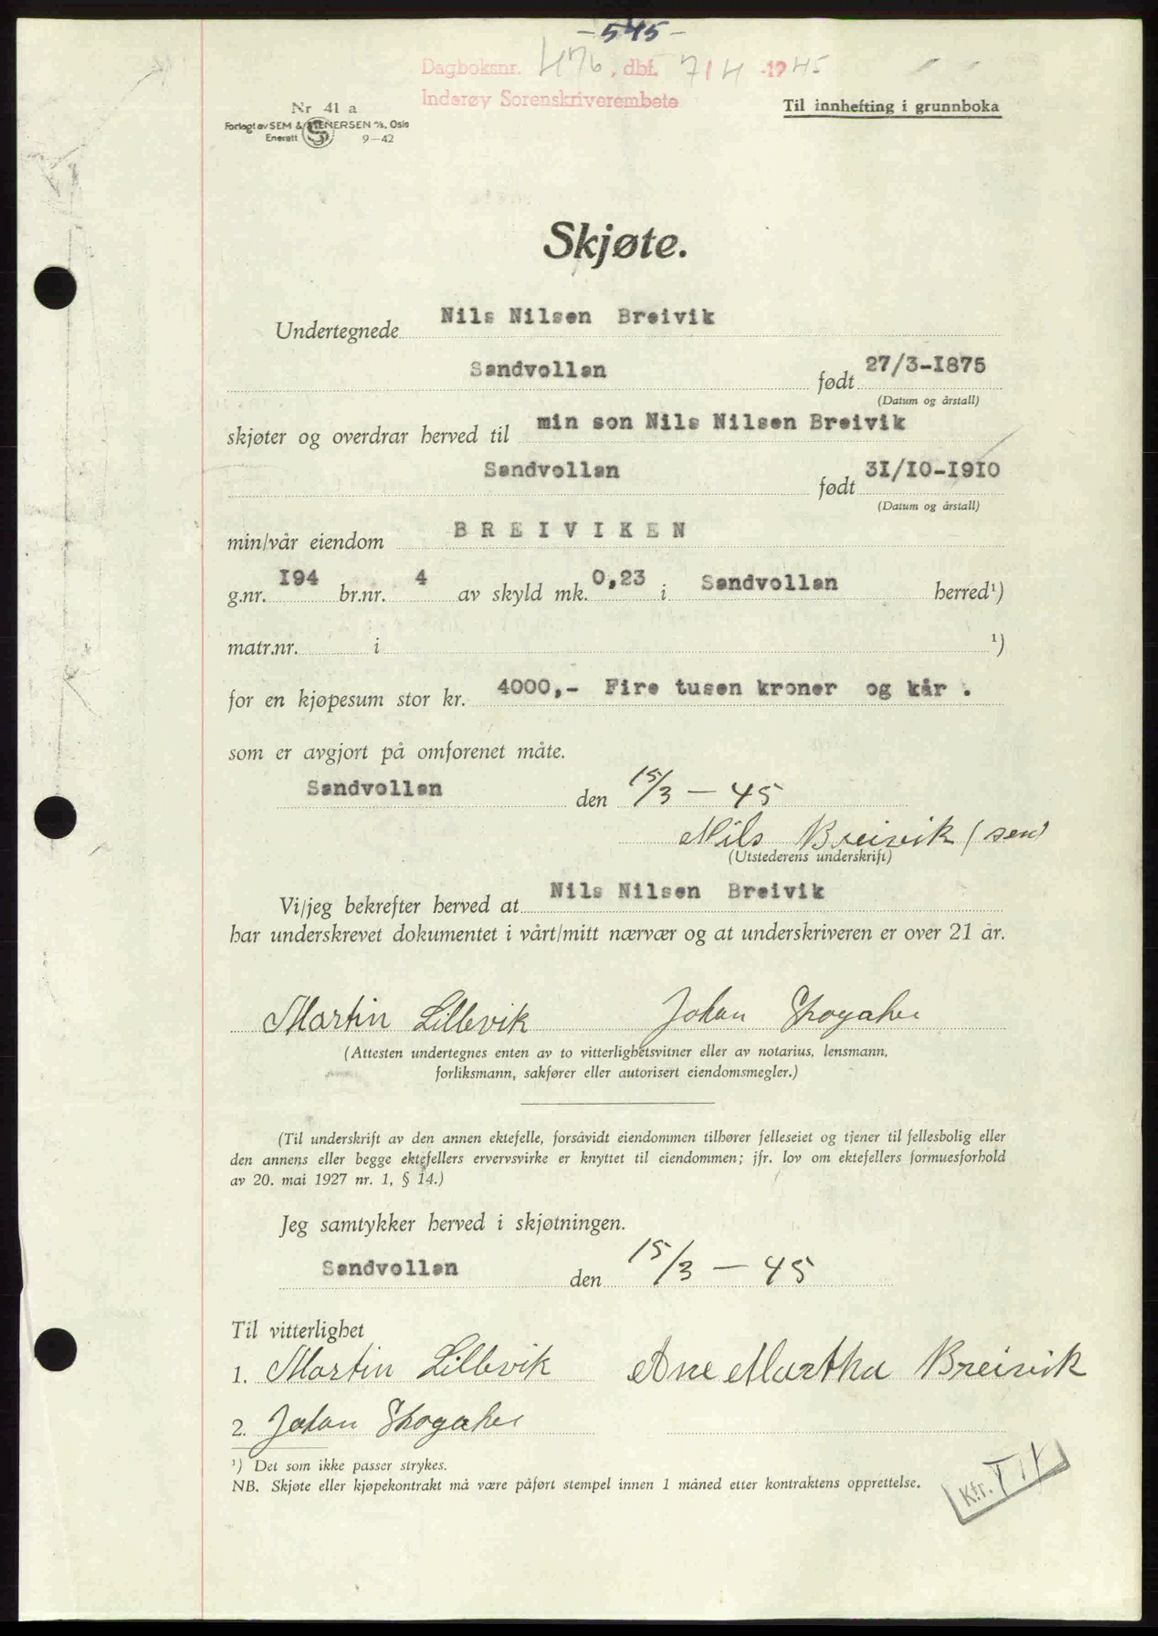 - 545 -
Dagboksnr. 476, dbf. 7/4 -1945
Inderøy Sorenskriverembete
Til innhefting i grunnboka
Nr 41 a
Forlagt av SEM & STENERSEN A/S, Oslo
Enerett 9-42
Skjøte.
Undertegnede Nils Nilsen Breivik
Sandvollan født 27/3-I875
(Datum og årstall)
skjøter og overdrar herved til min son Nils Nilsen Breivik
Sandvollan født 3I/I0-I9I0
(Datum og årstall)
min/vår eiendom B R E I V I K E N
g.nr. I94 br.nr. 4 av skyld mk. 0,23 i Sandvollan herred¹)
matr.nr. i ¹)
for en kjøpesum stor kr. 4000,- Fire tusen kroner og kår .
som er avgjort på omforenet måte.
Sandvollan den 15/3 - 45
Nils Breivik (sen)
(Utstederens underskrift)
Vi/jeg bekrefter herved at Nils Nilsen Breivik
har underskrevet dokumentet i vårt/mitt nærvær og at underskriveren er over 21 år.
Martin Lillevik Johan
(Attesten undertegnes enten av to vitterlighetsvitner eller av notarius, lensmann,
forliksmann, sakfører eller autorisert eiendomsmegler.)
(Til underskrift av den annen ektefelle, forsåvidt eiendommen tilhører felleseiet og tjener til fellesbolig eller
den annens eller begge ektefellers ervervsvirke er knyttet til eiendommen; jfr. lov om ektefellers formuesforhold
av 20. mai 1927 nr. 1, § 14.)
Jeg samtykker herved i skjøtningen.
Sandvollan den 15/3 - 45
Til vitterlighet
1. Martin Lillevik Ane Martha Breivik
2. Johan
¹) Det som ikke passer strykes.
NB. Skjøte eller kjøpekontrakt må være påført stempel innen 1 måned etter kontraktens opprettelse.
Ktr.